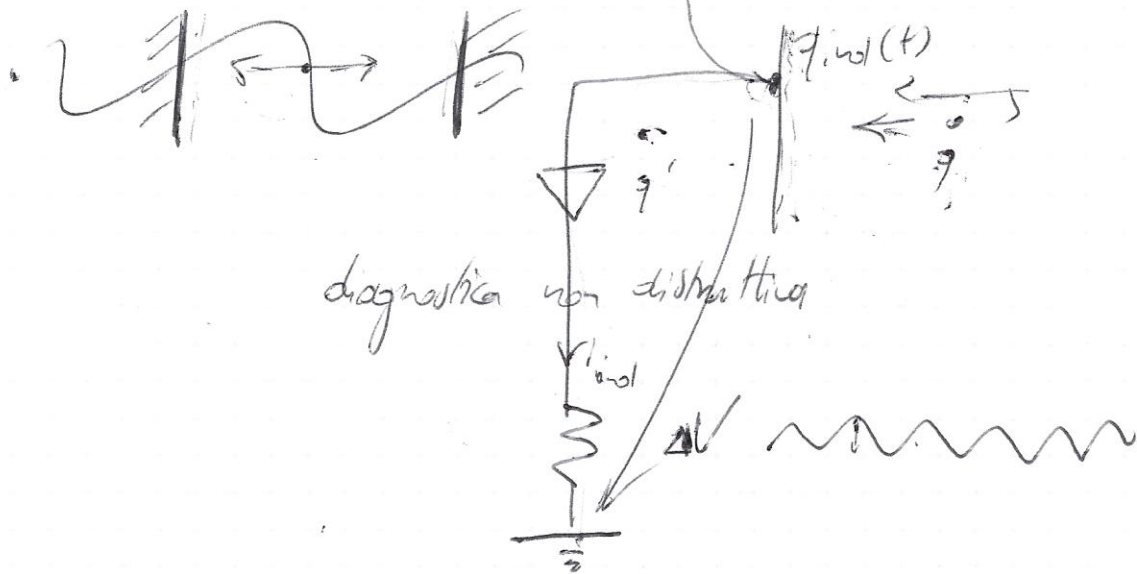 q_ind(t)
q'
q
diagnostica non distruttiva
i_ind
ΔV